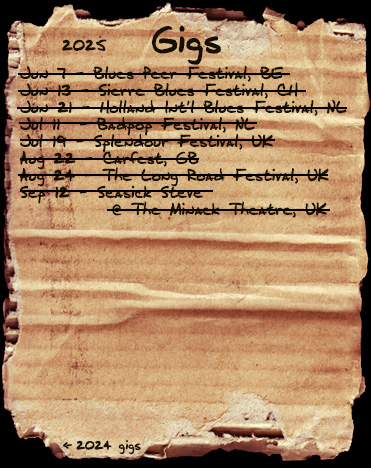 2025 Gigs
Jun 7 - Blues Peer Festival, BE
Jun 13 - Sierre Blues Festival, CH
Jun 21 - Holland Int'l Blues Festival, NL
Jul 11 - Badpop Festival, NL
Jul 19 - Splendour Festival, UK
Aug 22 - Carfest, GB
Aug 24 - The Long Road Festival, UK
Sep 12 - Seasick Steve
@ The Minack Theatre, UK
← 2024 gigs